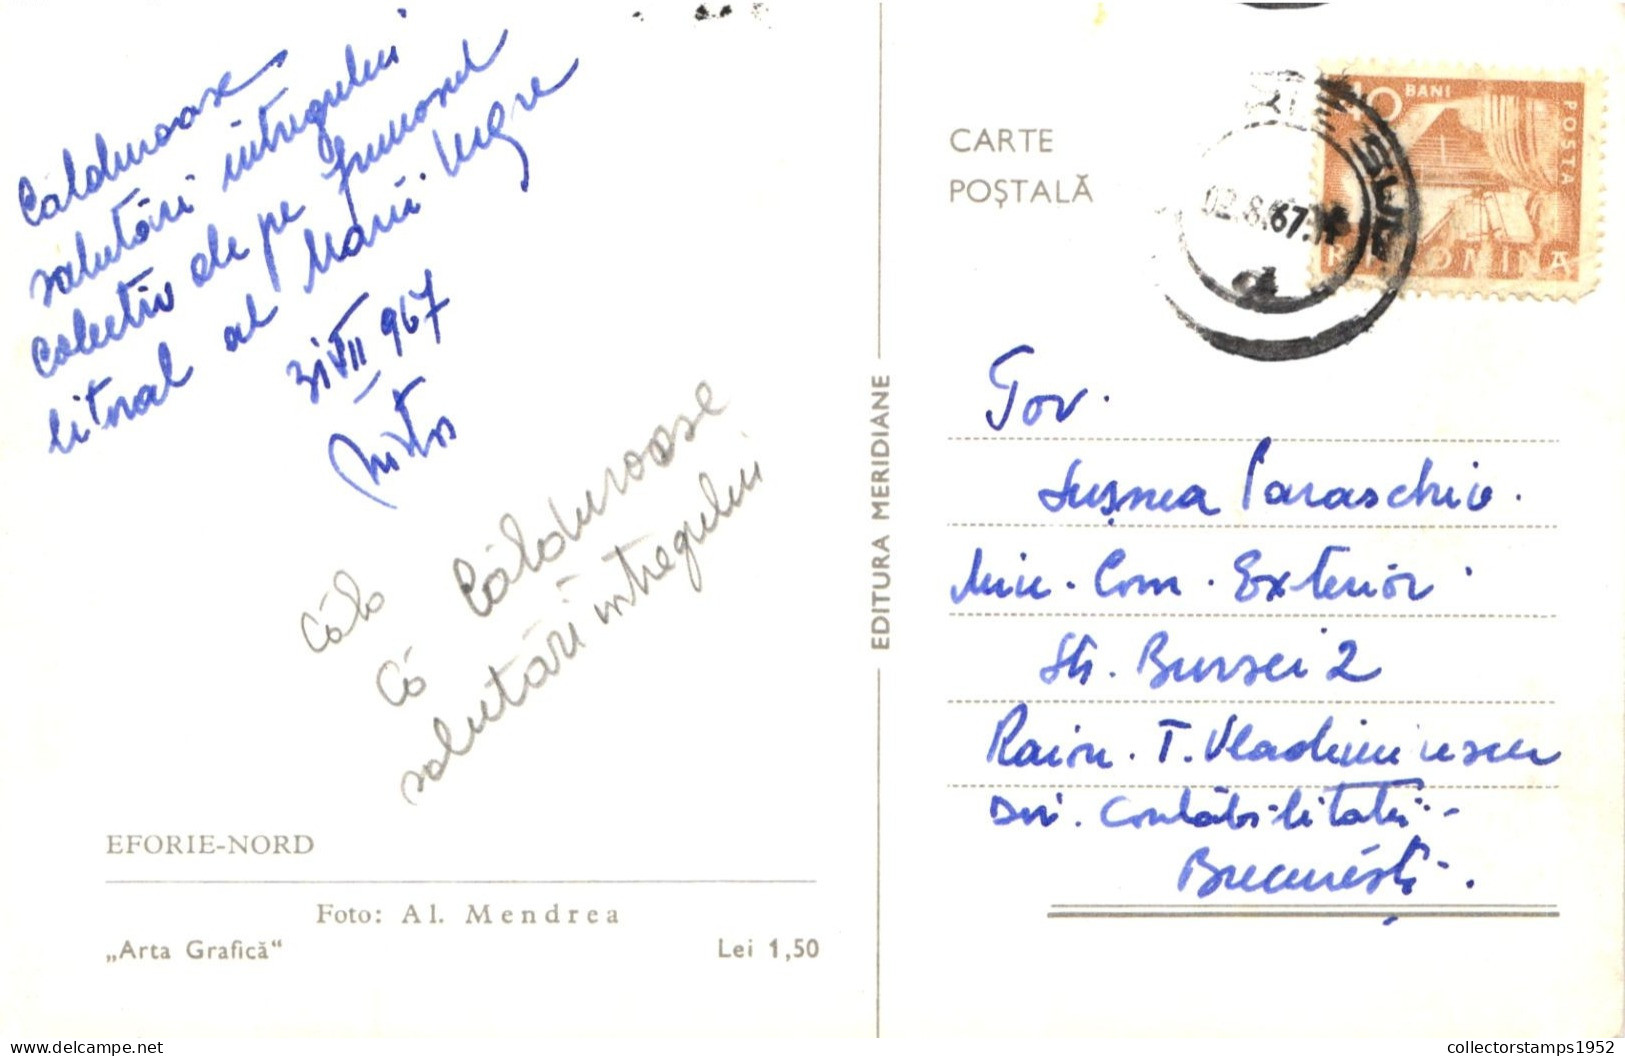 Călduroase
salutări întregului
colectiv de pe frumosul
litoral al Mării Negre
31 VII 967
Călduroase
salutări întregului
EFORIE-NORD
Foto: Al. Mendrea
„Arta Grafică“
Lei 1,50
EDITURA MERIDIANE
CARTE
POȘTALĂ
40 BANI
POSTA
R.P.ROMINA
02.8.67
Tov.
Sușnea Paraschiv.
Min. Com. Exterior.
Str. Bursei 2
Raion. T. Vladimirescu
Dir. Contăbilitatii -
București.
www.delcampe.net
collectorstamps1952